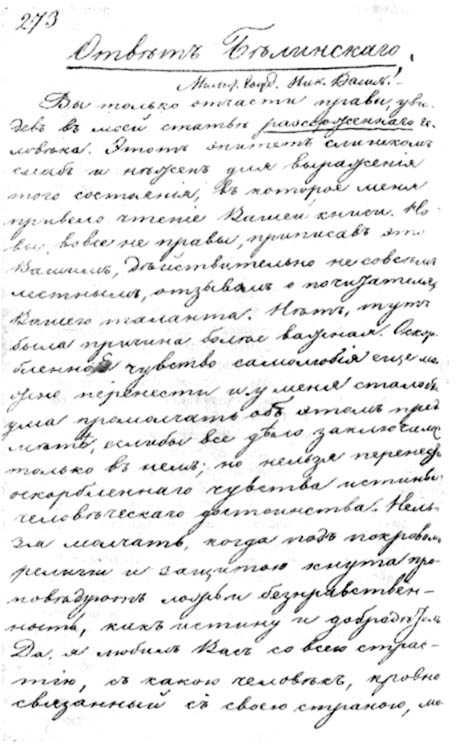 273
Отвѣтъ Бѣлинскаго.
Милост. Госуд. Ник. Васил.!
Вы только отчасти правы, уви-
дѣвъ въ моей статьѣ разсерженнаго че-
ловѣка. Этотъ эпитетъ слишкомъ
слабъ и нѣженъ для выраженія
того состоянія, въ которое меня
привело чтеніе Вашей книги. Но
вы вовсе не правы, приписавъ это
Вашимъ, дѣйствительно не совсѣмъ
лестнымъ, отзывамъ о почитателяхъ
Вашего таланта. Нѣтъ, тутъ
была причина болѣе важная. Оскор-
бленное чувство самолюбія еще мо-
жно перенести и у меня стало бы
ума промолчать объ этомъ пред-
метѣ, еслибы все дѣло заключалось
только въ немъ; но нельзя перенесть
оскорбленнаго чувства истины,
человѣческаго достоинства. Нель-
зя молчать, когда подъ покровомъ
религіи и защитою кнута про-
повѣдуютъ ложь и безнравствен-
ность, какъ истину и добродѣтель.
Да, я любилъ Васъ со всею страс-
тію, съ какою человѣкъ, кровно
связанный съ своею страною, мо-